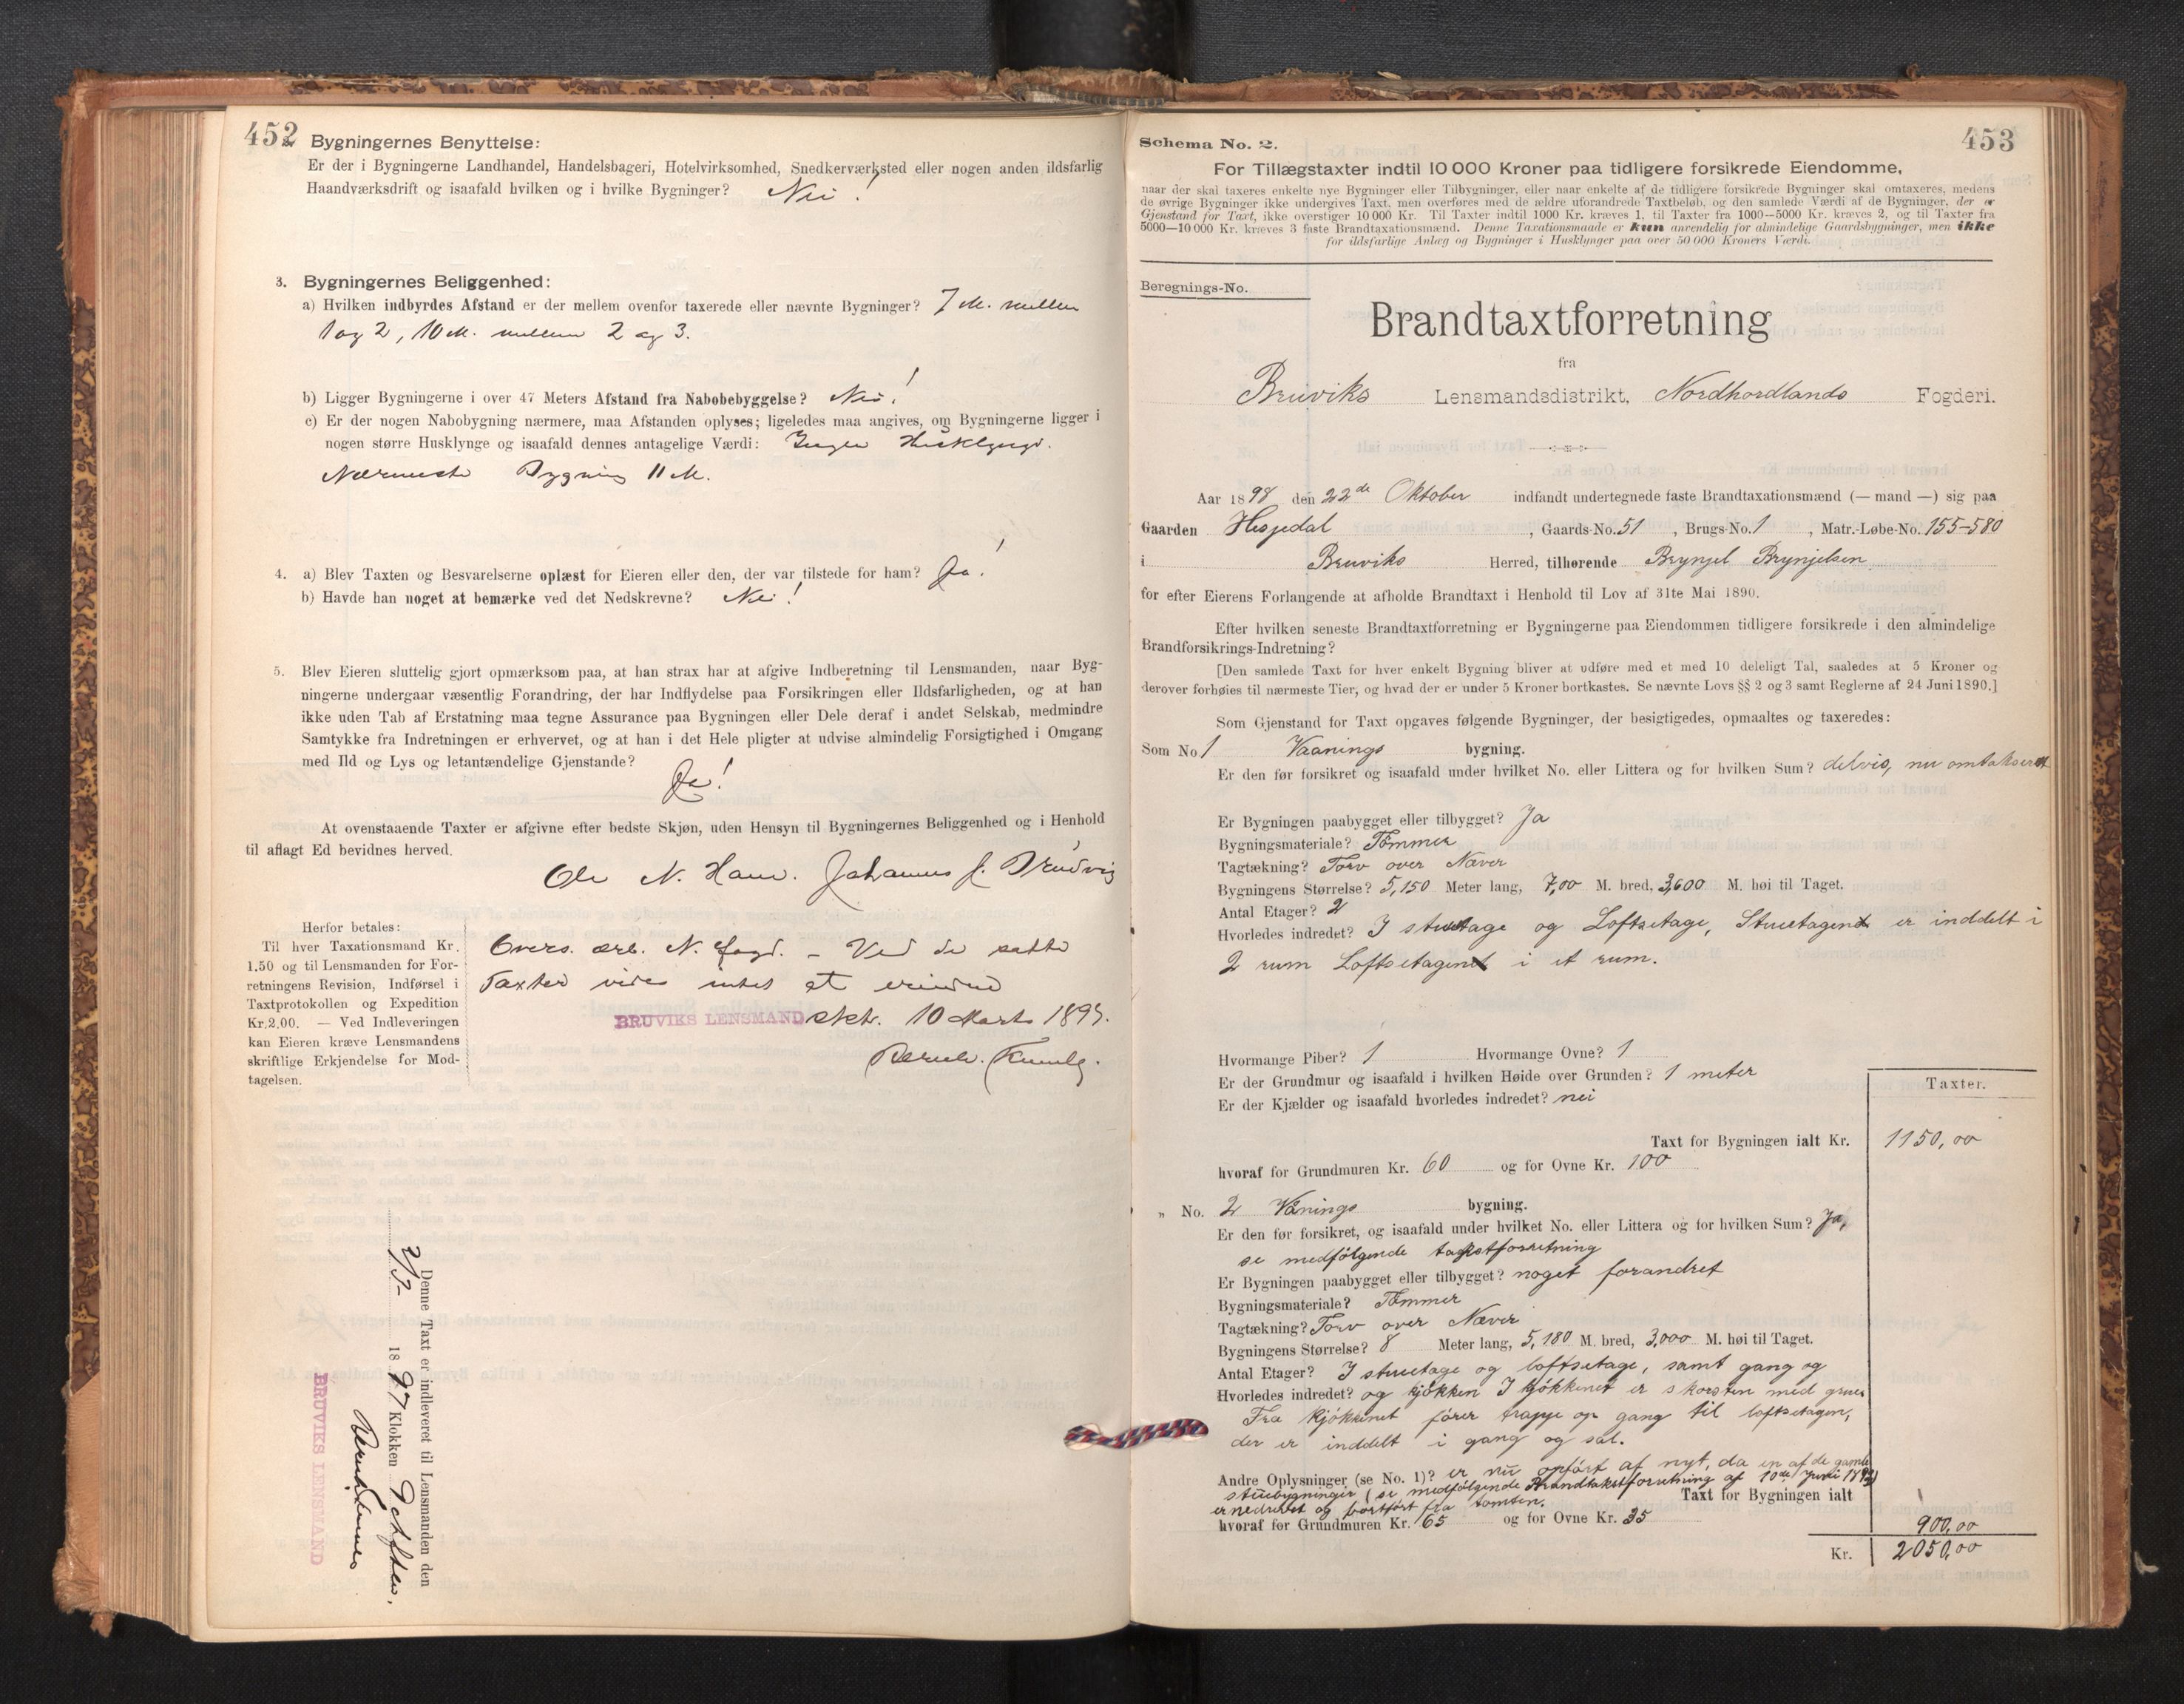 452
Bygningernes Benyttelse:
Er der i Bygningerne Landhandel, Handelsbageri, Hotelvirksomhed, Snedkerværksted eller nogen anden ildsfarlig
Haandværksdrift og isaafald hvilken og i hvilke Bygninger? Nei!
3. Bygningernes Beliggenhed:
a) Hvilken indbyrdes Afstand er der mellem ovenfor taxerede eller nævnte Bygninger? 7 M. mellem
1 og 2, 10 M. mellem 2 og 3.
b) Ligger Bygningerne i over 47 Meters Afstand fra Nabobebyggelse? Nei!
c) Er der nogen Nabobygning nærmere, maa Afstanden oplyses; ligeledes maa angives, om Bygningerne ligger i
nogen større Husklynge og isaafald dennes antagelige Værdi: Ingen Husklynge.
Nærmeste Bygning 11 M.
4. a) Blev Taxten og Besvarelserne oplæst for Eieren eller den, der var tilstede for ham? Ja!
b) Havde han noget at bemærke ved det Nedskrevne? Nei!
5. Blev Eieren sluttelig gjort opmærksom paa, at han strax har at afgive Indberetning til Lensmanden, naar Byg-
ningerne undergaar væsentlig Forandring, der har Indflydelse paa Forsikringen eller Ildsfarligheden, og at han
ikke uden Tab af Erstatning maa tegne Assurance paa Bygningen eller Dele deraf i andet Selskab, medmindre
Samtykke fra Indretningen er erhvervet, og at han i det Hele pligter at udvise almindelig Forsigtighed i Omgang
med Ild og Lys og letantændelige Gjenstande?
Ja!
At ovenstaaende Taxter er afgivne efter bedste Skjøn, uden Hensyn til Bygningernes Beliggenhed og i Henhold
til aflagt Ed bevidnes herved.
Ole N. Haus. Johannes J.
Herfor betales:
Til hver Taxationsmand Kr.
1.50 og til Lensmanden for For-
retningens Revision, Indførsel i
Taxtprotokollen og Expedition
Kr.2.00. — Ved Indleveringen
kan Eieren kræve Lensmandens
skriftlige Erkjendelse for Mod-
tagelsen.
Overs. ærb. N. Fogd. - Ved de satte
Taxter vides intet at erindre
BRUVIKS LENSMAND 10 Marts
Denne Taxt er indleveret til Lensmanden den
18 97 Klokken 9 Aften.
BRUVIKS LENSMAND
453
Schema No. 2.
For Tillægstaxter indtil 10 000 Kroner paa tidligere forsikrede Eiendomme,
naar der skal taxeres enkelte nye Bygninger eller Tilbygninger, eller naar enkelte af de tidligere forsikrede Bygninger skal omtaxeres, medens
de øvrige Bygninger ikke undergives Taxt, men overføres med de ældre uforandrede Taxtbeløb, og den samlede Værdi af de Bygninger, der er
Gjenstand for Taxt, ikke overstiger 10 000 Kr. Til Taxter indtil 1000 Kr. kræves 1, til Taxter fra 1000—5000 Kr. kræves 2, og til Taxter fra
5000—10 000 Kr. kræves 3 faste Brandtaxationsmænd. Denne Taxationsmaade er kun anvendelig for almindelige Gaardsbygninger, men ikke
for ildsfarlige Anlæg og Bygninger i Husklynger paa over 50 000 Kroners Værdi.
Beregnings-No.
Brandtaxtforretning
fra
Bruviks Lensmandsdistrikt, Nordhordlands Fogderi.
Aar 1898 den 22de Oktober indfandt undertegnede faste Brandtaxationsmænd (— mand —) sig paa
Gaarden Hesjedal, Gaards-No. 51, Brugs-No. 1, Matr.-Løbe-No. 155-580
i Bruviks Herred, tilhørende Brynjel Brynjelsen
for efter Eierens Forlangende at afholde Brandtaxt i Henhold til Lov af 31te Mai 1890.
Efter hvilken seneste Brandtaxtforretning er Bygningerne paa Eiendommen tidligere forsikrede i den almindelige
Brandforsikrings-Indretning?
[Den samlede Taxt for hver enkelt Bygning bliver at udføre med et med 10 deleligt Tal, saaledes at 5 Kroner og
derover forhøies til nærmeste Tier, og hvad der er under 5 Kroner bortkastes. Se nævnte Lovs §§ 2 og 3 samt Reglerne af 24 Juni 1890.]
Som Gjenstand for Taxt opgaves følgende Bygninger, der besigtigedes, opmaaltes og taxeredes:
Som No 1 Vaanings bygning.
Er den før forsikret og isaafald under hvilket No. eller Littera og for hvilken Sum? delvis, nu omtakseret
Er Bygningen paabygget eller tilbygget? Ja
Bygningsmateriale? Tömmer
Tagtækning? Torv over Næver
Bygningens Størrelse? 5,150 Meter lang, 7,00 M. bred, 3,600 M. høi til Taget.
Antal Etager? 2
Hvorledes indredet? I stuetage og Loftsetage, Stuetagen er inddelt i
2 rum Loftsetagen i et rum.
Hvormange Piber? 1 Hvormange Ovne? 1
Er der Grundmur og isaafald i hvilken Høide over Grunden? 1 meter
Er der Kjælder og isaafald hvorledes indredet? nei
Taxter.
Taxt for Bygningen ialt Kr. 1150,00
hvoraf for Grundmuren Kr. 60 og for Ovne Kr. 100
" No. 2 Vånings bygning.
Er den før forsikret, og isaafald under hvilket No. eller Littera og for hvilken Sum? Ja,
se medfölgende takstforretning
Er Bygningen paabygget eller tilbygget? noget forandret
Bygningsmateriale? Tömmer
Tagtækning? Torv over Næver
Bygningens Størrelse? 8 Meter lang, 5,180 M. bred, 3,000 M. høi til Taget.
Antal Etager? I stuetage og loftsetage, samt gang og
Hvorledes indredet? og kjökken I kjökkenet er skorsten med grue
Fra kjökkenet fører trappe op gang til loftsetagen,
der er inddelt i gang og sal.
Andre Oplysninger (se No. 1)? er nu opfört af nyt, da en af de gamle
stuebygninger (se medfölgende Brandtakstforretning af 10de Juni 1893)
er nedrevet og bortfört fra tomten. Taxt for Bygningen ialt
hvoraf for Grundmuren Kr. 65 og for Ovne Kr. 35 900,00
Kr. 2050,00